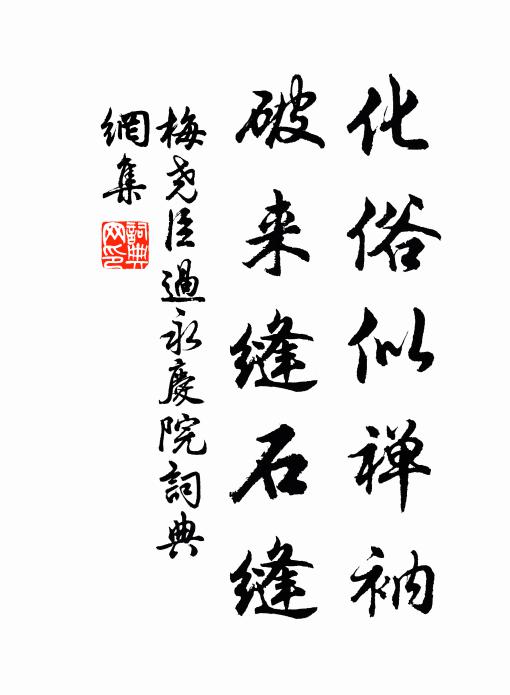 化俗似禅衲
破来缝石缝
梅尧臣過永慶院詞典
網集
詞典
网印